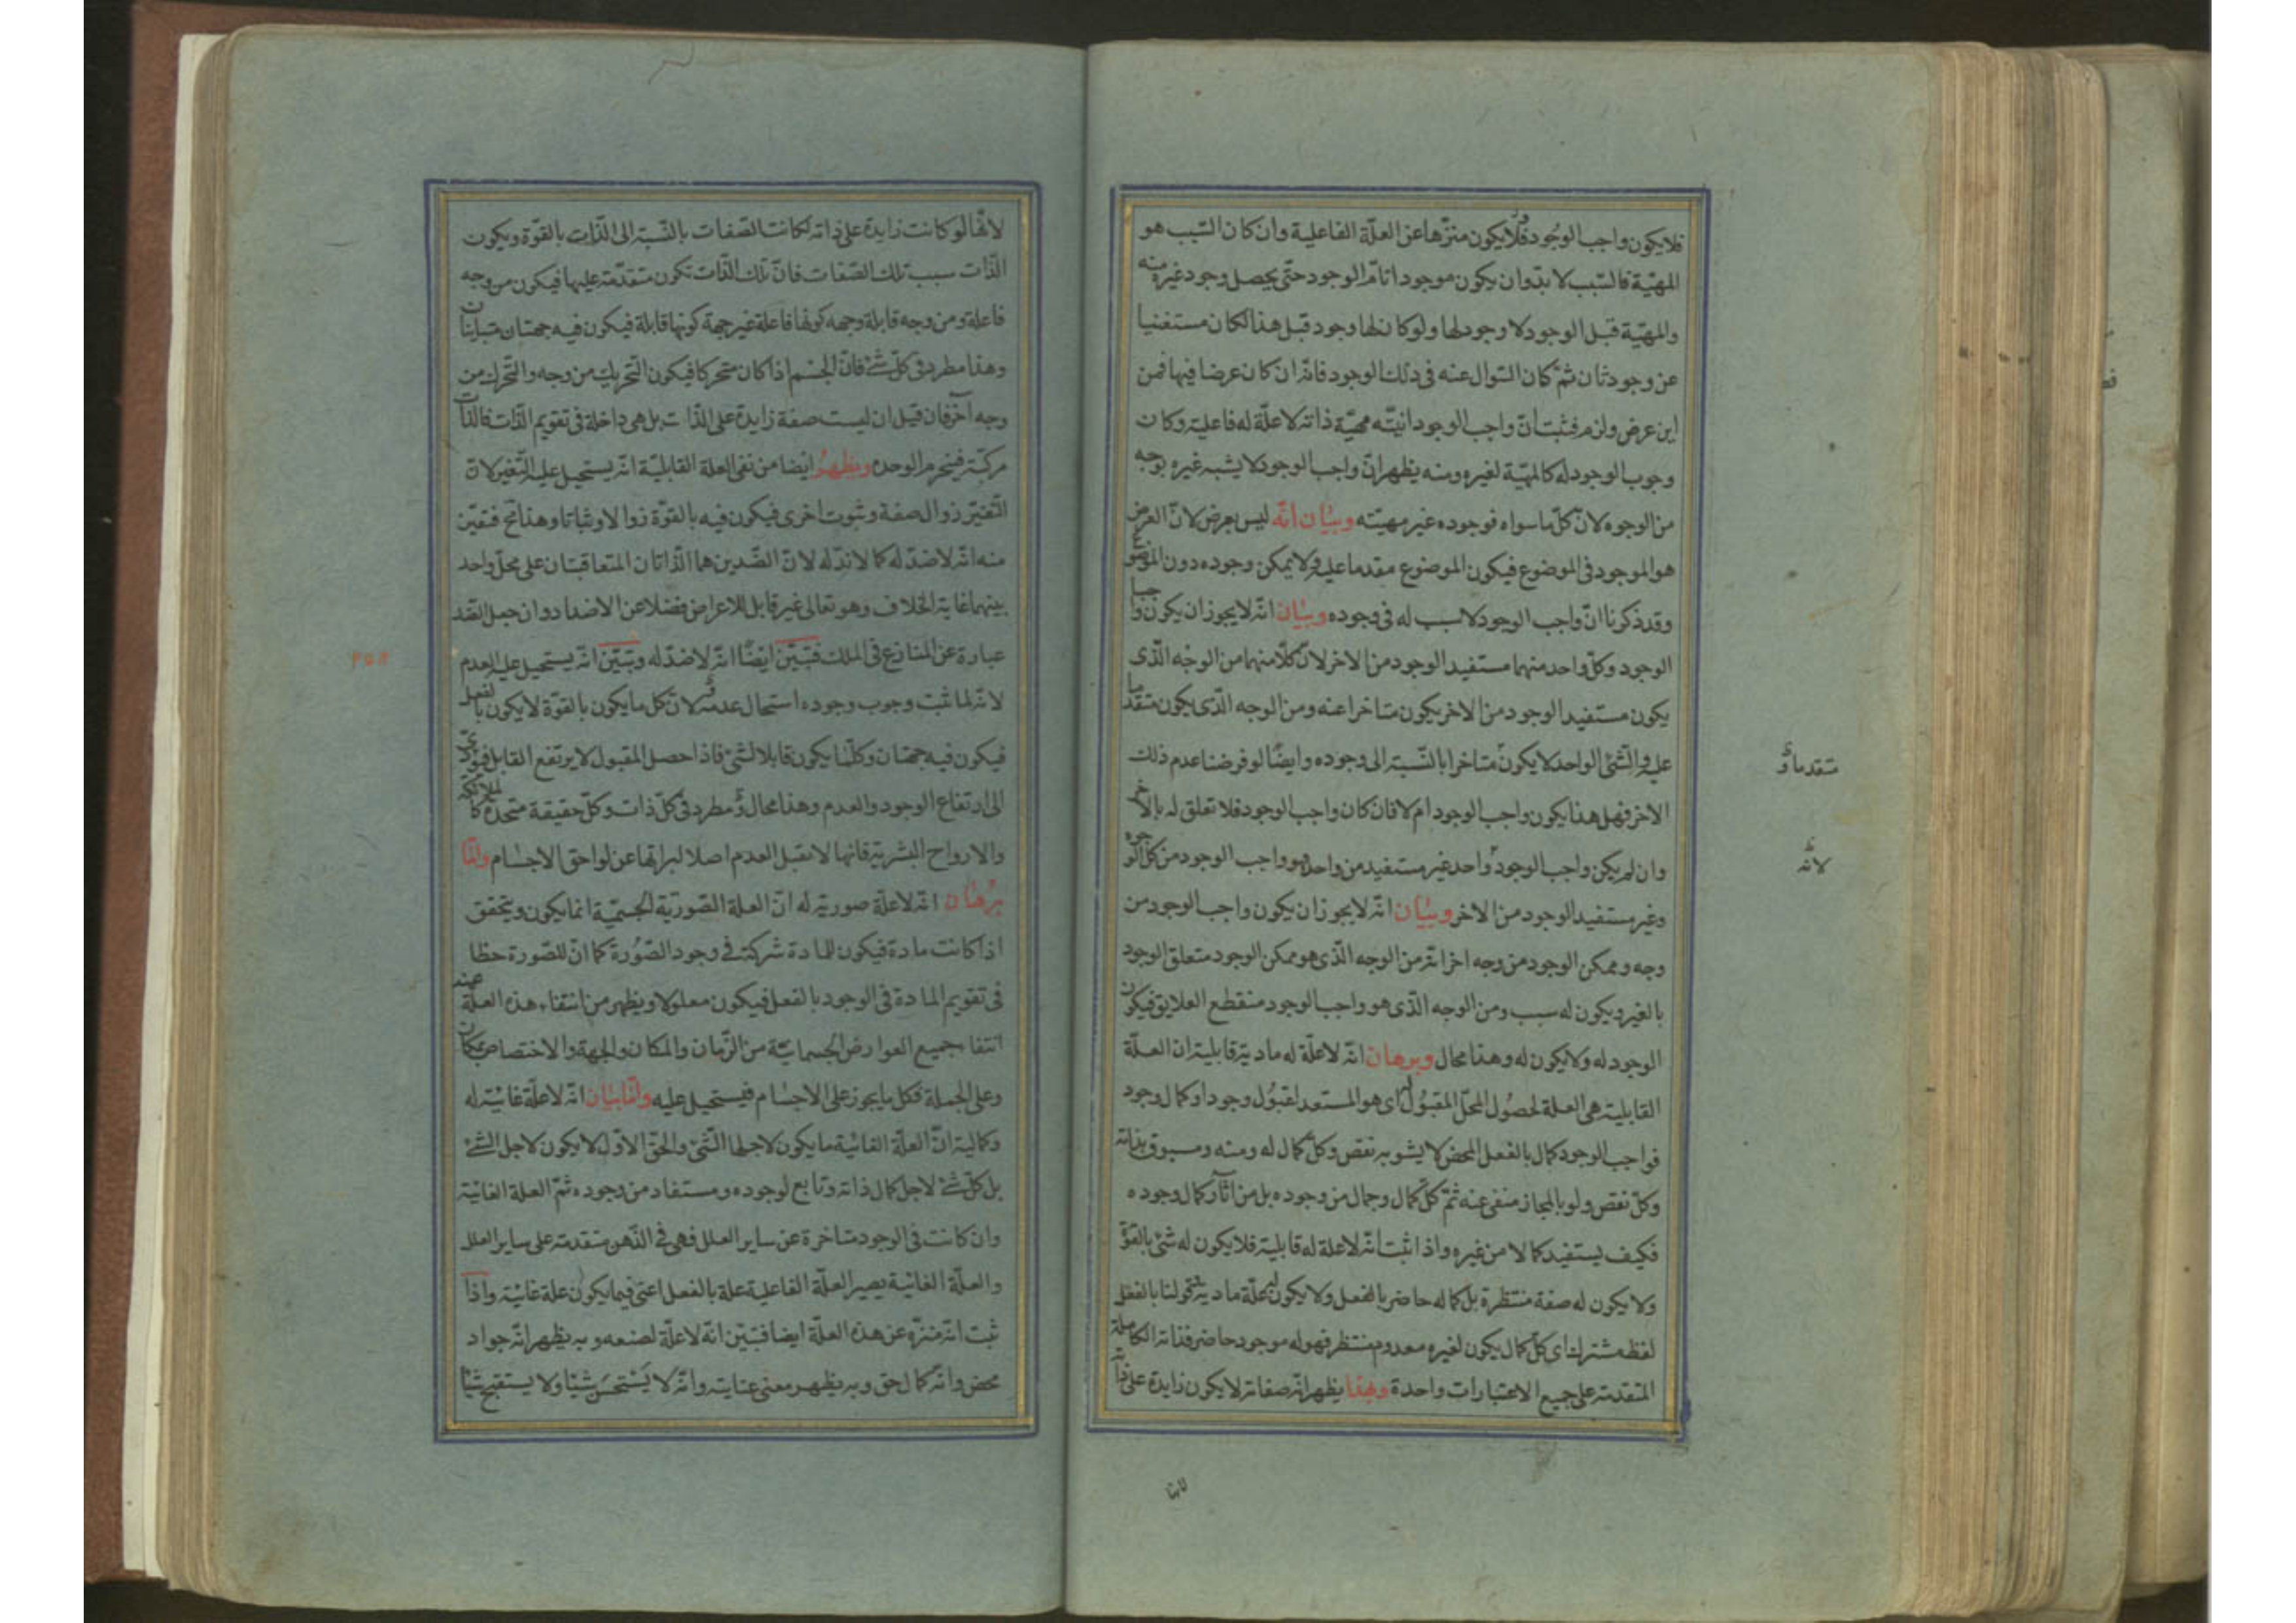 فلا يكون واجب الوجود فلا يكون منزّها عن العلّة الفاعلية وان كان السّبب هو
المهيّة فالسّبب لا بدّ وان يكون موجودا تامّ الوجود حتّى يحصل وجود غيره منه
والمهيّة قبل الوجود لا وجود لها ولو كان لها وجود قبل هذا لكان مستغنيا
عن وجود ثان ثمّ كان السّوال عنه فى ذلك الوجود فانّه ان كان عرضا فيها فمن
اين عرض ولزم فثبت انّ واجب الوجود انيّته مهيّة ذاته لا علّة له فاعلية وكان
وجوب الوجود له كالمهيّة لغيره ومنه يظهر انّ واجب الوجود لا يشبه غيره بوجه
من الوجوه لانّ كلّ ما سواه فوجوده غير مهيّته وبيان انّه ليس بعرض لانّ العرض
هو الموجود فى الموضوع فيكون الموضوع مقدما عليه ولا يمكن وجوده دون الموضوع
وقد ذكرنا انّ واجب الوجود لا سبب له فى وجوده وبيان انّه لا يجوز ان يكون واجبا
الوجود وكلّ واحد منهما مستفيد الوجود من الاخر لانّ كلّا منهما من الوجه الّذى
يكون مستفيد الوجود من الاخر يكون متاخرا عنه ومن الوجه الّذى يكون متقدما
عليه والشّئ الواحد لا يكون متاخرا بالنّسبة الى وجوده وايضا لو فرضنا عدم ذلك
متقدما و
الاخر فهل هذا يكون واجب الوجود ام لا فان كان واجب الوجود فلا تعلق له بالاخر
وان لم يكن واجب الوجود واحد غير مستفيد من واحد وهو واجب الوجود من كل الوجوه
لانه
وغير مستفيد الوجود من الاخر وبيان انّه لا يجوز ان يكون واجب الوجود من
وجه وممكن الوجود من وجه اخر انّه من الوجه الّذى هو ممكن الوجود متعلق الوجود
بالغير ويكون له سبب ومن الوجه الّذى هو واجب الوجود منقطع العلايق فيكون
الوجود له ولا يكون له وهذا محال وبرهان انّه لا علّة له مادية قابلية ان العلّة
القابلية هى العلة لحصول المحلّ المقبول اى هو المستعد لقبول وجود او كمال وجود
فواجب الوجود كمال بالفعل المحض لا يشوبه نقص وكلّ كمال له ومنه ومسبوق بذاته
وكلّ نقص ولو بالمجاز منفى عنه ثمّ كلّ كمال وجمال من وجوده بل من آثار كمال وجوده
فكيف يستفيد كمالا من غيره واذا ثبت انّه لا علة له قابلية فلا يكون له شئ بالقوّة
ولا يكون له صفة منتظرة بل كماله حاضر بالفعل ولا يكون له علّة مادية وقولنا بالفعل
لفظ مشترك اى كلّ كمال يكون لغيره معدوم منتظر فهو له موجود حاضر فذاته الكاملة
المتقدمة على جميع الاعتبارات واحدة وبهذا يظهر انّ صفاته لا يكون زايدة على ذاته
لانها
لانّها لو كانت زايدة على ذاته لكانت الصّفات بالنّسبة الى الذّات بالقوّة ويكون
الذّات سبب تلك الصّفات فانّ تلك الذّات تكون متقدّمة عليها فيكون من وجه
فاعلة ومن وجه قابلة وجهه كونها فاعلة غير جهة كونها قابلة فيكون فيه جهتان متباينان
وهذا مطرد فى كلّ شئ فانّ الجسم اذا كان متحركا فيكون التّحريك من وجه والتّحرك من
وجه آخر فان قيل ان ليست صفة زايدة على الذّات بل هى داخلة فى تقويم الذّات فالذّات
مركّبة فينخرم الوحده ويظهر ايضا من نفى العلة القابليّة انّه يستحيل عليه التّغير لانّ
التّغيّر زوال صفة وثبوت اخرى فيكون فيه بالقوّة زوالا وثباتا وهذا مح فتبيّن
منه انّه لا ضدّ له كما لا ندّ له لانّ الضّدين هما الذّاتان المتعاقبتان على محلّ واحد
بينهما غاية الخلاف وهو تعالى غير قابل للاعراض فضلا عن الاضداد وان جعل الضّد
عبارة عن المنازع فى الملك فتبيّن ايضا انّه لا ضدّ له وتبيّن انّه يستحيل عليه العدم
۲۵۸
لانّه لما ثبت وجوب وجوده استحال عدمه لانّ كل ما يكون بالقوّة لا يكون بالفعل
فيكون فيه جهتان وكلّما يكون قابلا لشئ فاذا حصل المقبول لا يرتفع القابل فيؤدّى
الى ارتفاع الوجود والعدم وهذا محال و مطرد فى كلّ ذات وكلّ حقيقة متحدة كالملائكة
والارواح البشرية فانها لا تقبل العدم اصلا لبراتها عن لواحق الاجسام وامّا
برهان انّه لا علّة صورية له انّ العلة الصّوريّة الجسميّة انما يكون ويتحقق
اذا كانت مادة فيكون للمادة شركة فى وجود الصّورة كما انّ للصّورة حظا
فى تقويم المادة فى الوجود بالفعل فيكون معلولا ويظهر من انتفاء هذه العلّة عنه
انتفاء جميع العوارض الجسمانيّة من الزّمان والمكان والجهة والاختصاص بمكان
وعلى الجملة فكل ما يجوز على الاجسام فيستحيل عليه وامّا بيان انّه لا علّة غائيّة له
وكمالية انّ العلّة الغائية ما يكون لاجلها الشّئ والحقّ الاوّل لا يكون لاجل الشّئ
بل كلّ شئ لاجل كمال ذاته وتابع لوجوده ومستفاد من وجوده ثمّ العلة الغائيّة
وان كانت فى الوجود متاخرة عن ساير العلل فهى فى الذّهن متقدمة على ساير العلل
والعلّة الغائية يصير العلّة الفاعلية علة بالفعل اعنى فيما يكون علة غائيّة واذا
ثبت انّه منزّه عن هذه العلّة ايضا فتبيّن انّه لا علّة لصنعه وبه يظهر انّه جواد
محض وانّه كمال حق وبه يظهر معنى عنايته وانّه لا يستحسن شيئا ولا يستقبح شيئا